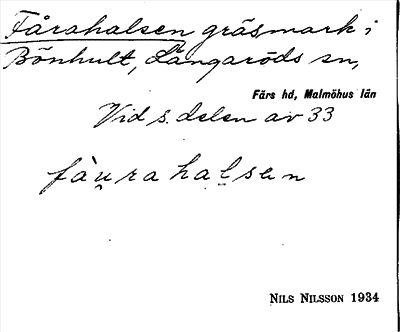 Fårahalsen gräsmark i
Bönhult, Långaröds sn,
Färs hd, Malmöhus län
Vid s. delen av 33
fàu̯rahal̯sen
NILS NILSSON 1934